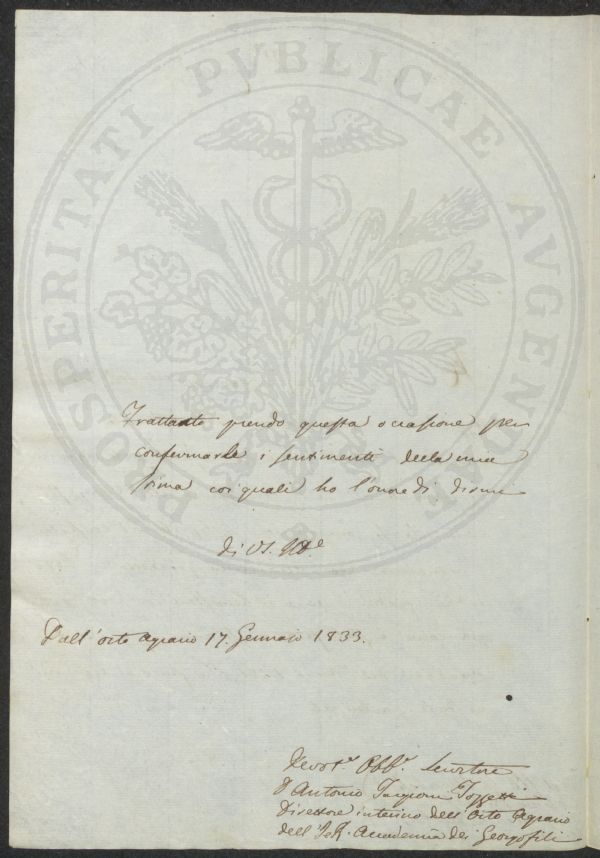 PROSPERITATI PVBLICAE AVGENDAE
Frattanto prendo questa occasione per
confermarle i sentimenti della mia
stima coi quali ho l'onore di dirmi
di VS.
Dall'orto agrario 17. Gennaio 1833.
Devot.o Obb.o Servitore
D Antonio Targioni Tozzetti
Direttore interino dell'Orto Agrario
dell'I.e R. Accademia dei Georgofili